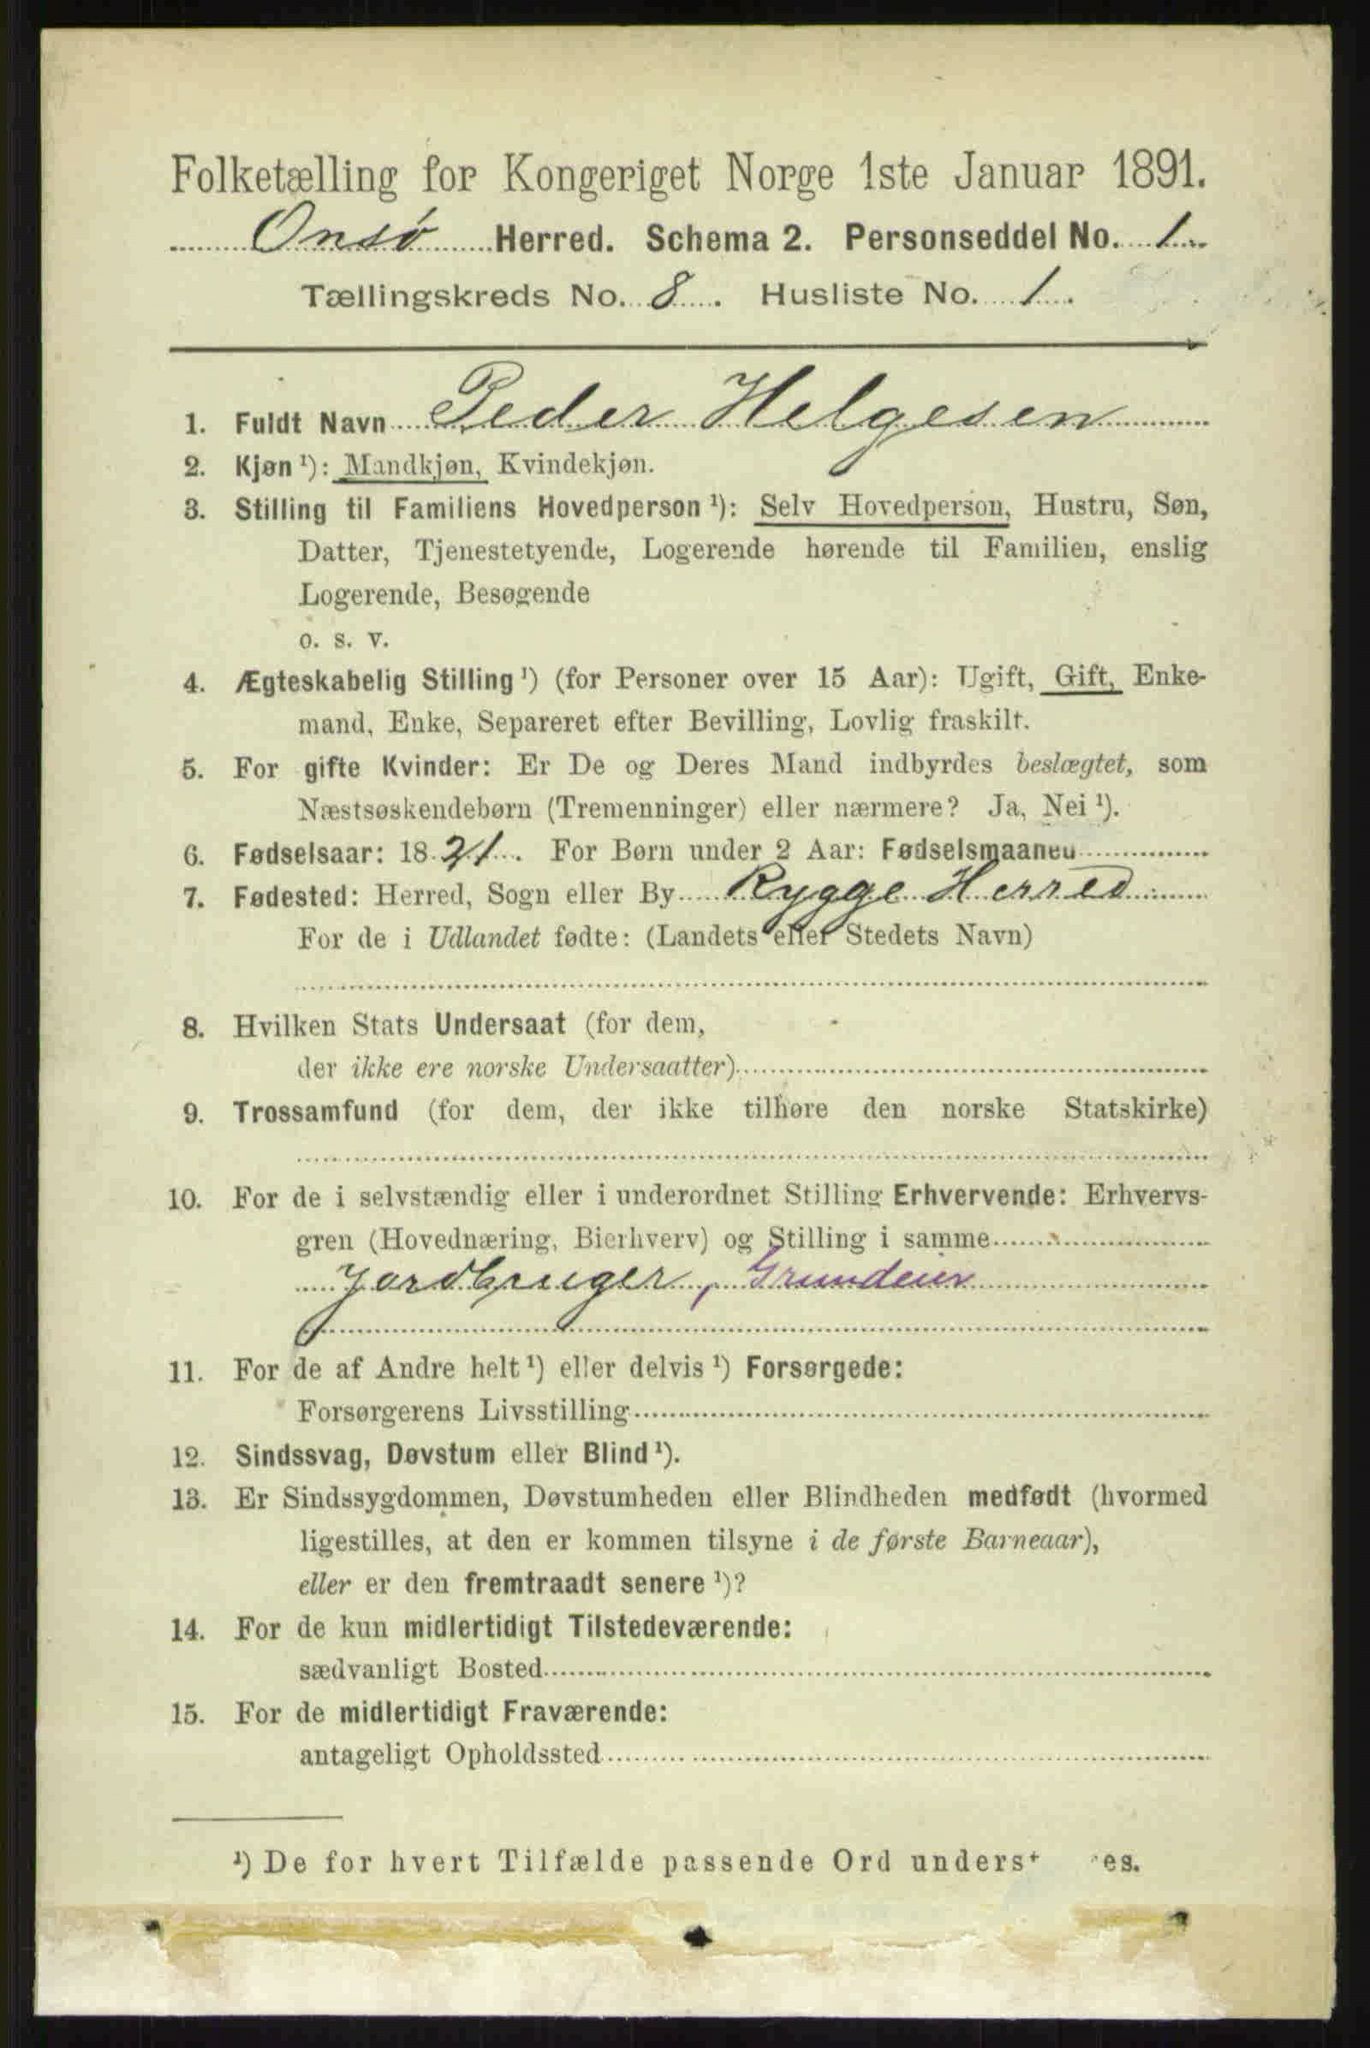 Folketælling for Kongeriget Norge 1ste Januar 1891.
Onsø Herred. Schema 2. Personseddel No. 1
Tællingskreds No. 8. Husliste No. 1.
1. Fuldt Navn Peder Helgesen
2. Kjøn ¹): Mandkjøn, Kvindekjøn.
3. Stilling til Familiens Hovedperson ¹): Selv Hovedperson, Hustru, Søn,
Datter, Tjenestetyende, Logerende hørende til Familien, enslig
Logerende, Besøgende
o. s. v.
4. Ægteskabelig Stilling ¹) (for Personer over 15 Aar): Ugift, Gift, Enke-
mand, Enke, Separeret efter Bevilling, Lovlig fraskilt.
5. For gifte Kvinder: Er De og Deres Mand indbyrdes beslægtet, som
Næstsøskendebørn (Tremenninger) eller nærmere? Ja, Nei ¹).
6. Fødselsaar: 1821. For Børn under 2 Aar: Fødselsmaaned
7. Fødested: Herred, Sogn eller By Rygge Herred
For de i Udlandet fødte: (Landets eller Stedets Navn)
8. Hvilken Stats Undersaat (for dem,
der ikke ere norske Undersaatter)
9. Trossamfund (for dem, der ikke tilhøre den norske Statskirke)
10. For de i selvstændig eller i underordnet Stilling Erhvervende: Erhvervs-
gren (Hovednæring, Bierhverv) og Stilling i samme
Jordbruger, Grundeier
11. For de af Andre helt ¹) eller delvis ¹) Forsørgede:
Forsørgerens Livsstilling
12. Sindssvag, Døvstum eller Blind ¹).
13. Er Sindssygdommen, Døvstumheden eller Blindheden medfødt (hvormed
ligestilles, at den er kommen tilsyne i de første Barneaar),
eller er den fremtraadt senere ¹)?
14. For de kun midlertidigt Tilstedeværende:
sædvanligt Bosted
15. For de midlertidigt Fraværende:
antageligt Opholdssted
¹) De for hvert Tilfælde passende Ord unders es.